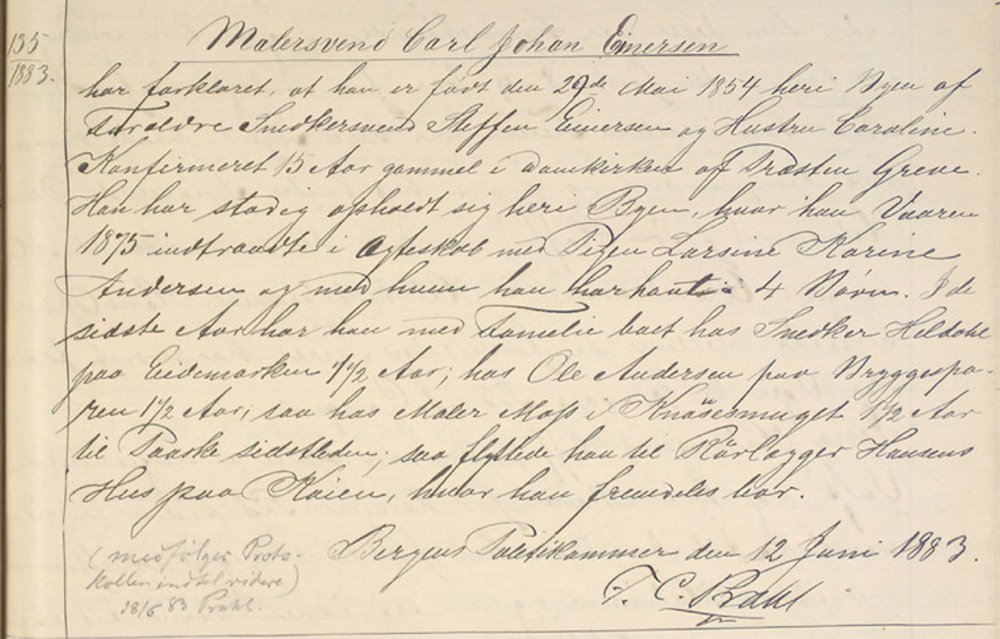 135
1883.
Malersvend Carl Johan Einersen
har forklaret, at han er født den 29de Mai 1854 heri Byen af
Forældre Snedkersvend Steffen Einersen og Hustru Caroline.
Konfirmeret 15 Aar gammel i Domkirken af Præsten Greve.
Han har stadig opholdt sig heri Byen, hvor han Vaaren
1875 indtraadte i Ægteskab med Pigen Larsine Karine
Andersen og med hvem han har havt 4 Børn. I de
sidste Aar har han med Familie boet hos Snedker Heldahl
paa Eidemarken 1 1/2 Aar; hos Ole Andersen paa Bryggespo-
ren 1 1/2 Aar; saa hos Maler Moss i Knøsesmuget 1 1/2 Aar
til Paaske sidstleden; saa flyttede han til Rörlægger Hansens
Hus paa Kaien, hvor han fremdeles bor.
Bergens Politikammer den 12 Juni 1883.
T. C. Prahl
(medfølger Proto-
kollen indtil videre)
18/6 83 Prahl.